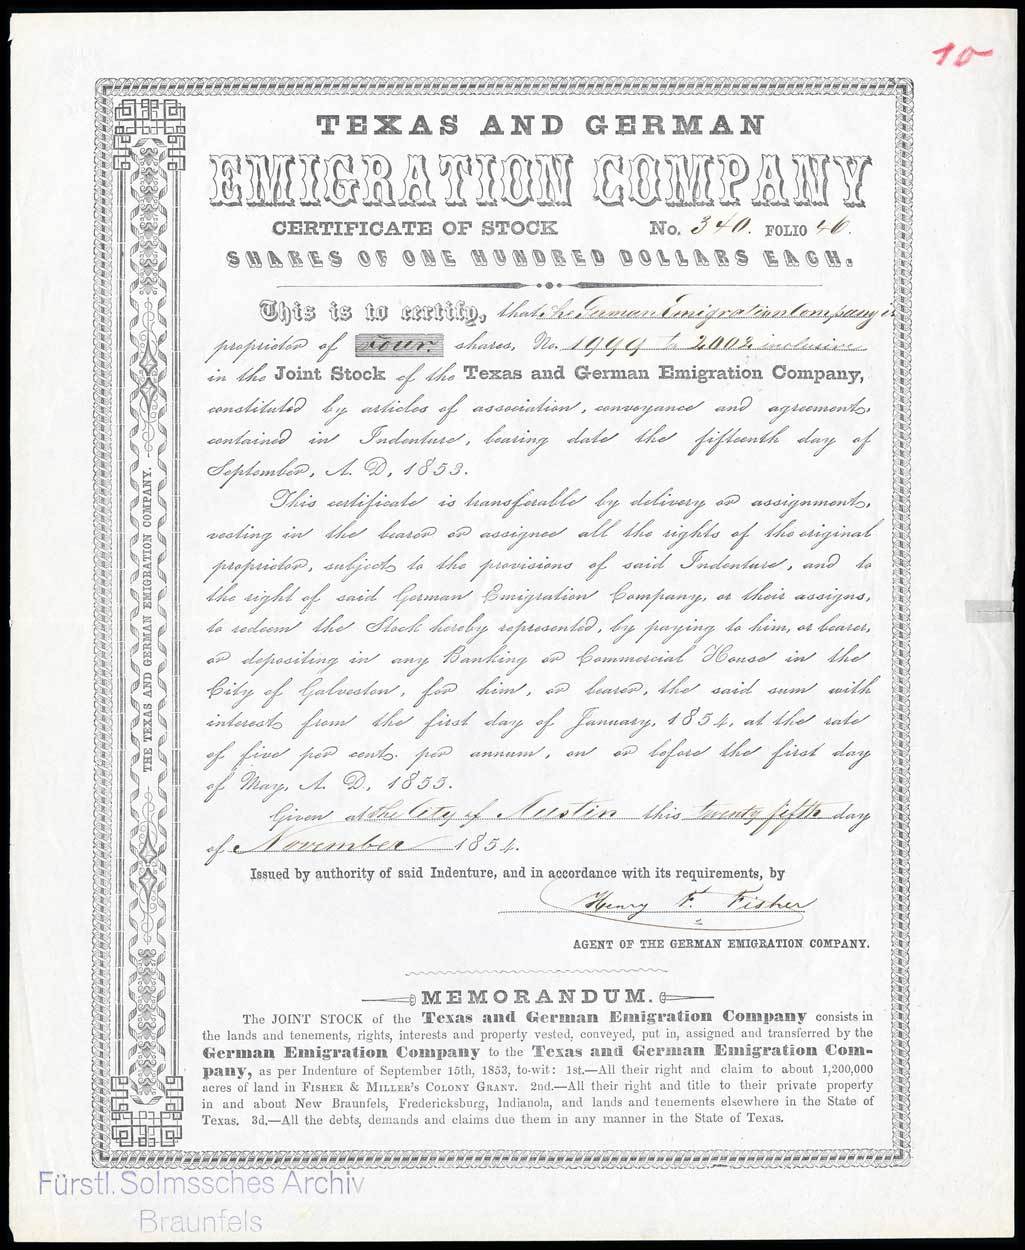 10
TEXAS AND GERMAN
EMIGRATION COMPANY
CERTIFICATE OF STOCK No. 340. FOLIO 46.
SHARES OF ONE HUNDRED DOLLARS EACH.
This is to certify, that the German Emigration Company is
proprietor of Four. shares, No. 1999 to 2002 inclusive
in the Joint Stock of the Texas and German Emigration Company,
constituted by articles of association, conveyance and agreement,
contained in Indenture, bearing date the fifteenth day of
September, A. D. 1853.
This certificate is transferable by delivery or assignment,
vesting in the bearer or assignee all the rights of the original
proprietor, subject to the provisions of said Indenture, and to
the right of said German Emigration Company, or their assigns,
to redeem the Stock hereby represented, by paying to him, or bearer,
or depositing in any Banking or Commercial House in the
City of Galveston, for him, or bearer, the said sum with
interest from the first day of January, 1854, at the rate
of five per cent. per annum, on or before the first day
of May, A. D. 1855.
Given at the City of Austin this twenty fifth day
of November 1854.
Issued by authority of said Indenture, and in accordance with its requirements, by
Henry F. Fisher
AGENT OF THE GERMAN EMIGRATION COMPANY.
MEMORANDUM.
The JOINT STOCK of the Texas and German Emigration Company consists in
the lands and tenements, rights, interests and property vested, conveyed, put in, assigned and transferred by the
German Emigration Company to the Texas and German Emigration Com-
pany, as per Indenture of September 15th, 1853, to-wit: 1st.—All their right and claim to about 1,200,000
acres of land in FISHER & MILLER'S COLONY GRANT. 2nd.—All their right and title to their private property
in and about New Braunfels, Fredericksburg, Indianola, and lands and tenements elsewhere in the State of
Texas. 3d.—All the debts, demands and claims due them in any manner in the State of Texas.
THE TEXAS AND GERMAN EMIGRATION COMPANY.
Fürstl. Solmssches Archiv
Braunfels